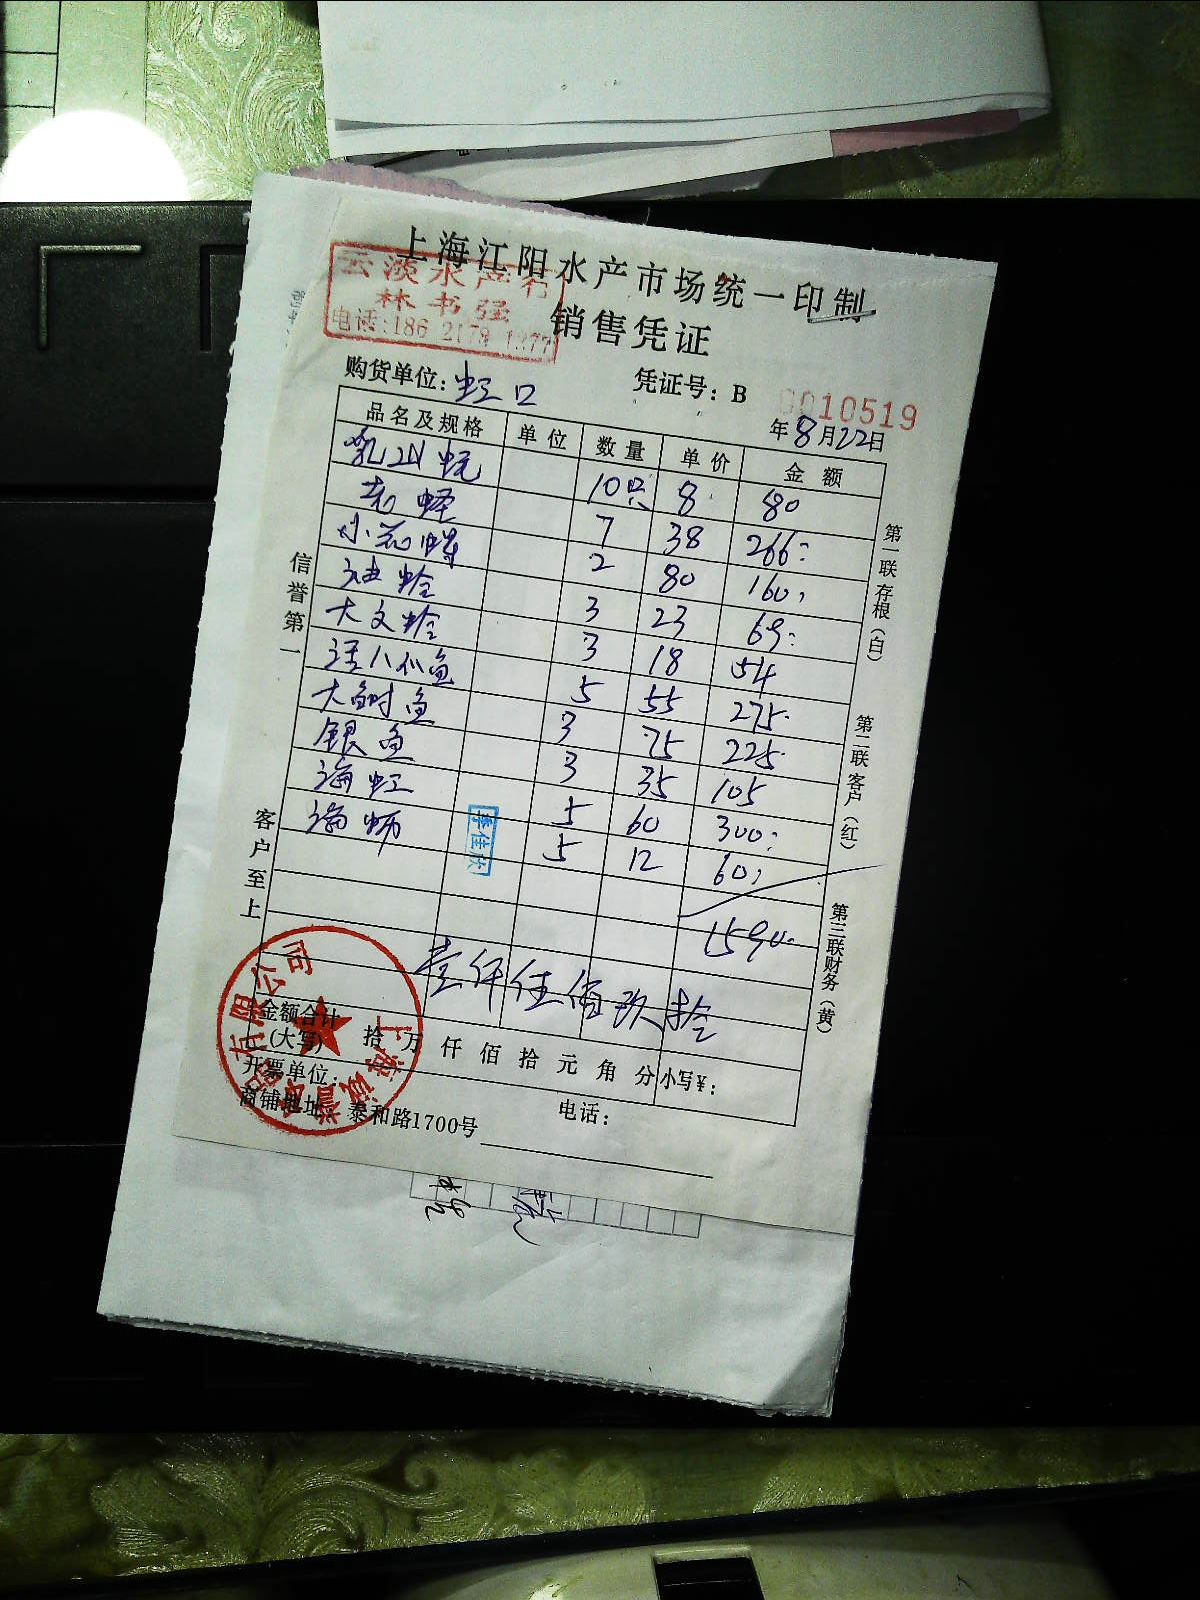 上海江阳水产市场统一印制
销售凭证
云淡水产行
林书强
电话:186 2179 1277
购货单位: 虹口
凭证号: B 0010519
年8月22日
品名及规格 单位 数量 单价 金额
乳山蚝 10只 8 80
老蛏 7 38 266:
小花螺 2 80 160:
油蛤 3 23 69:
大文蛤 3 18 54
活八爪鱼 5 55 275.
大鲥鱼 3 75 225.
银鱼 3 35 105
海虹 5 60 300:
海蛳 5 12 60:
1590.
壹仟伍佰玖拾
李佳欣
金额合计(大写) 拾 万 仟 佰 拾 元 角 分 小写¥:
开票单位:
电话:
商铺地址: 泰和路1700号
信誉第一
客户至上
第一联存根(白)
第二联客户(红)
第三联财务(黄)